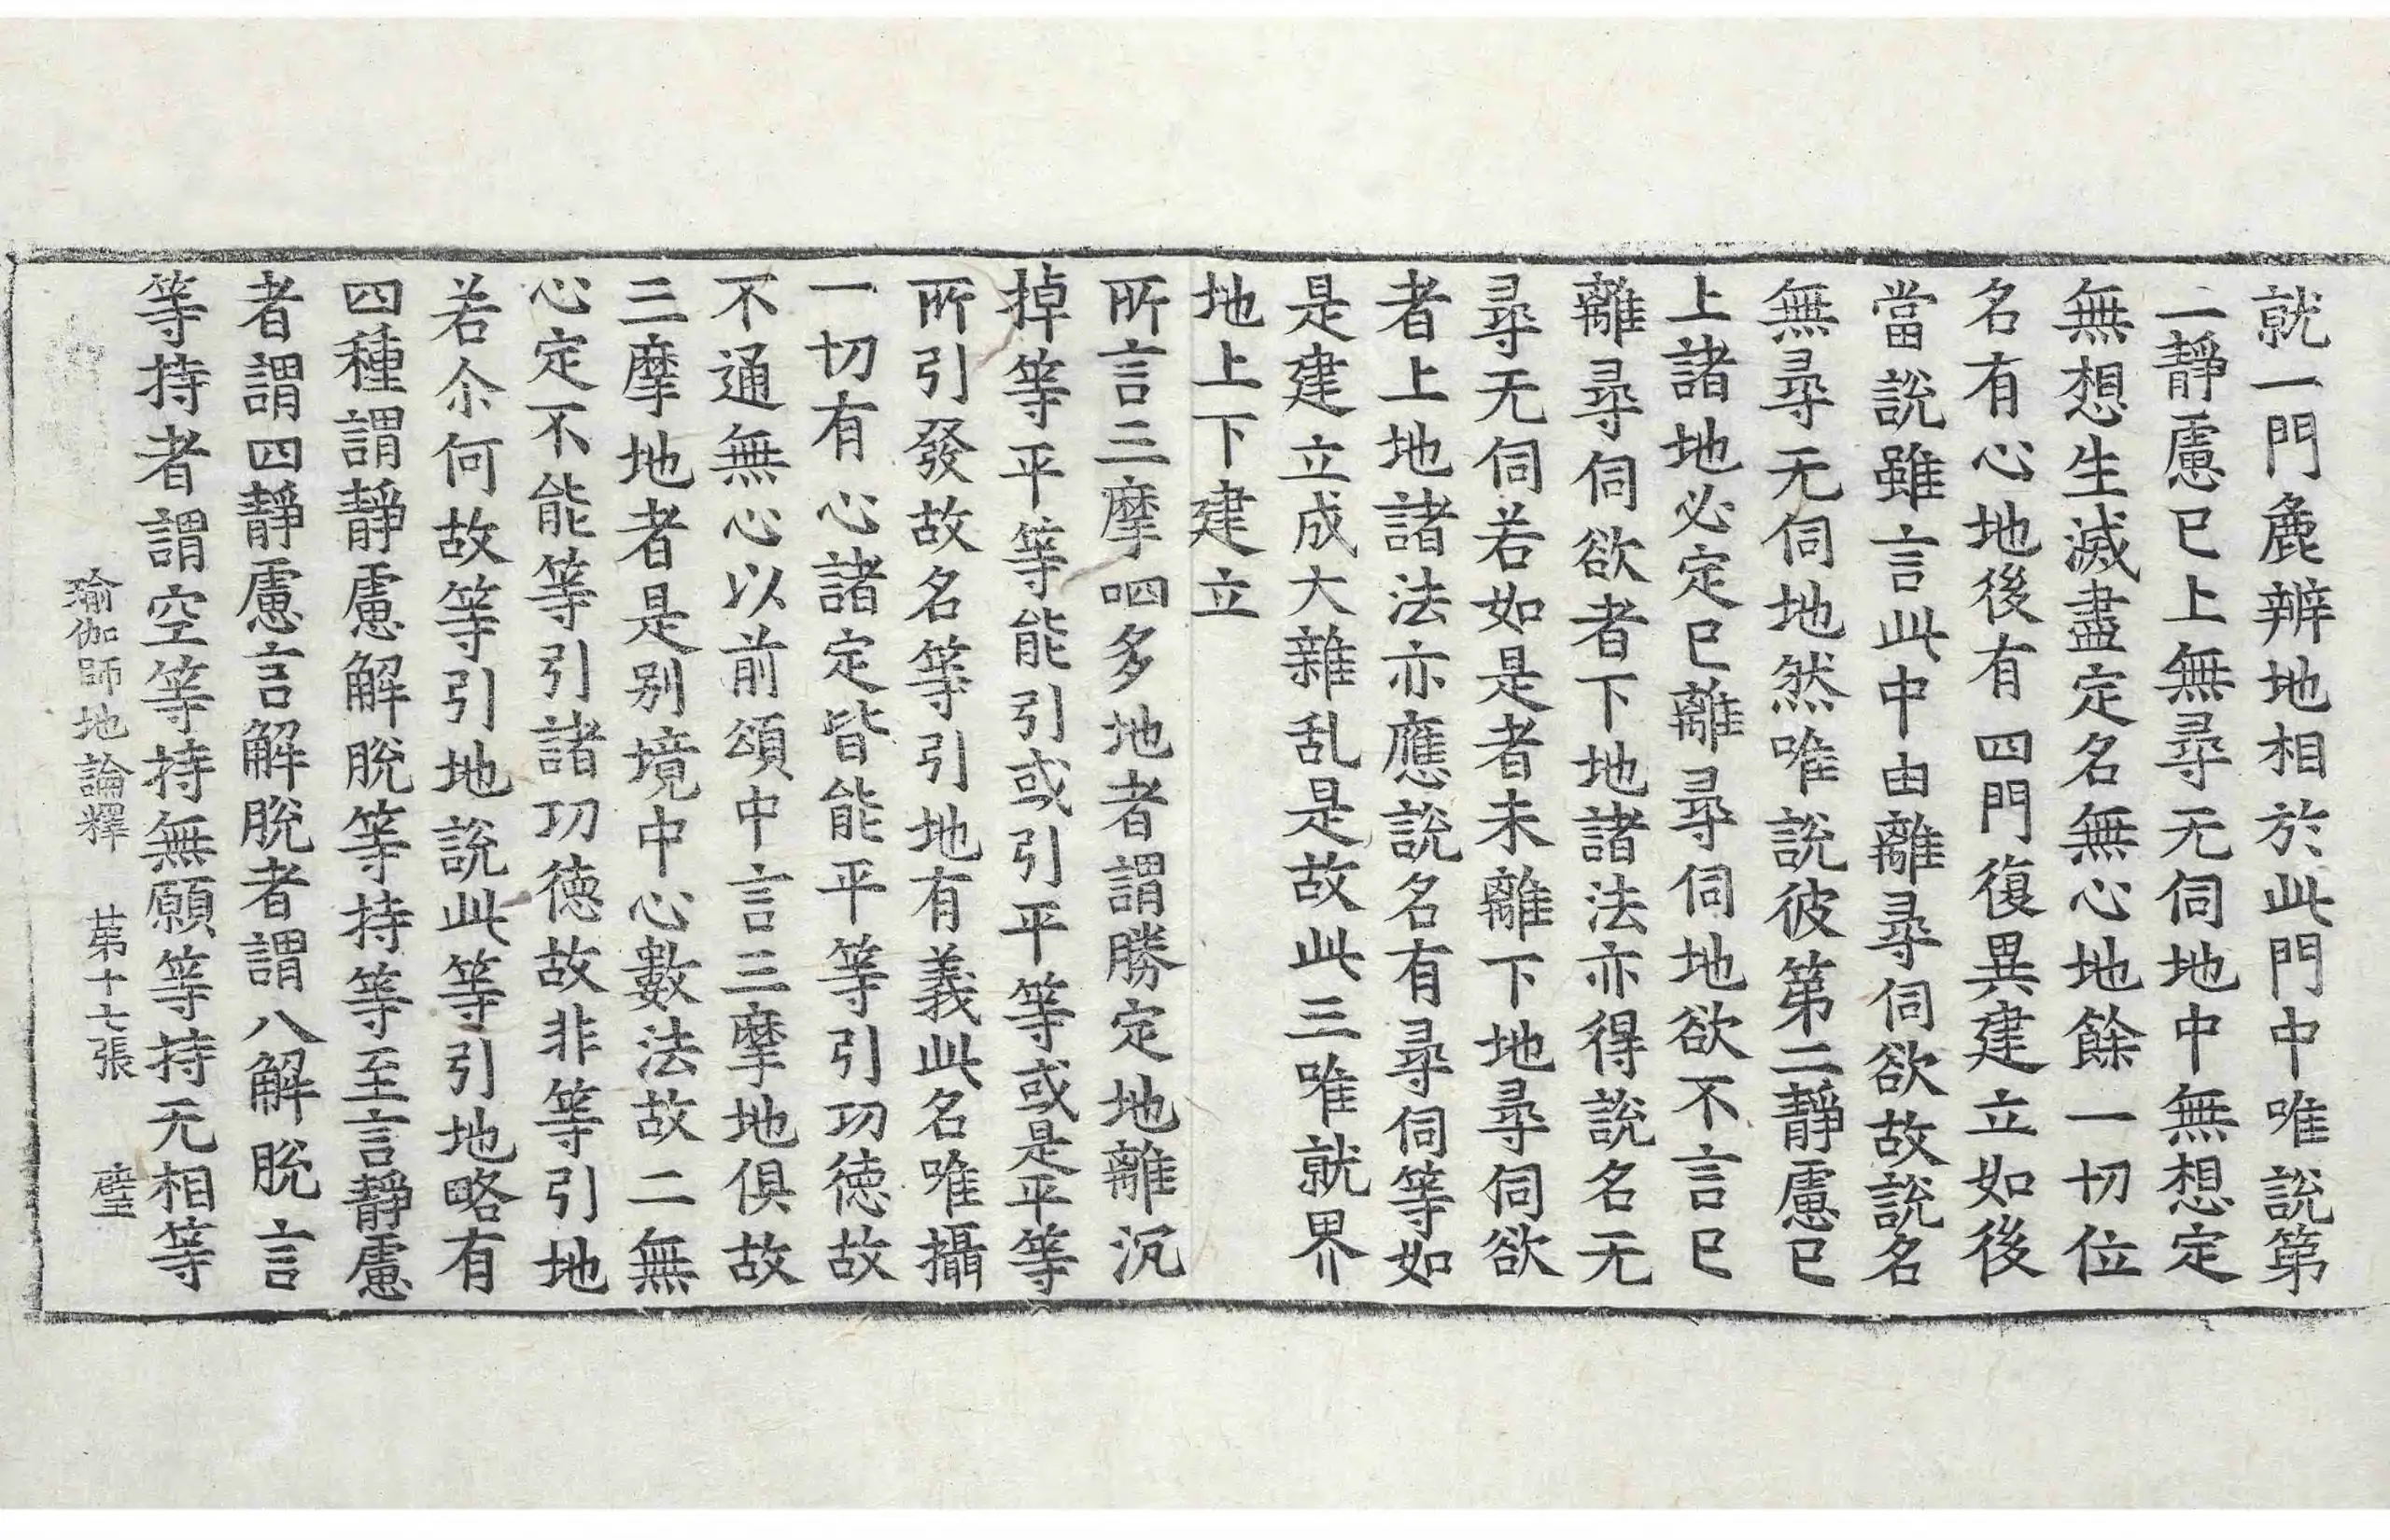 就一門麁辨地相於此門中唯說第
二靜慮已上無尋无伺地中無想定
無想生滅盡定名無心地餘一切位
名有心地後有四門復異建立如後
當說雖言此中由離尋伺欲故說名
無尋无伺地然唯說彼第二靜慮已
上諸地必定已離尋伺地欲不言已
離尋伺欲者下地諸法亦得說名无
尋无伺若如是者未離下地尋伺欲
者上地諸法亦應說名有尋伺等如
是建立成大雜乱是故此三唯就界
地上下建立
所言三摩呬多地者謂勝定地離沉
掉等平等能引或引平等或是平等
所引發故名等引地有義此名唯攝
一切有心諸定皆能平等引功德故
不通無心以前頌中言三摩地俱故
三摩地者是別境中心數法故二無
心定不能等引諸功德故非等引地
若尒何故等引地說此等引地略有
四種謂靜慮解脫等持等至言靜慮
者謂四靜慮言解脫者謂八解脫言
等持者謂空等持無願等持无相等
瑜伽師地論釋 苐十七張 壁